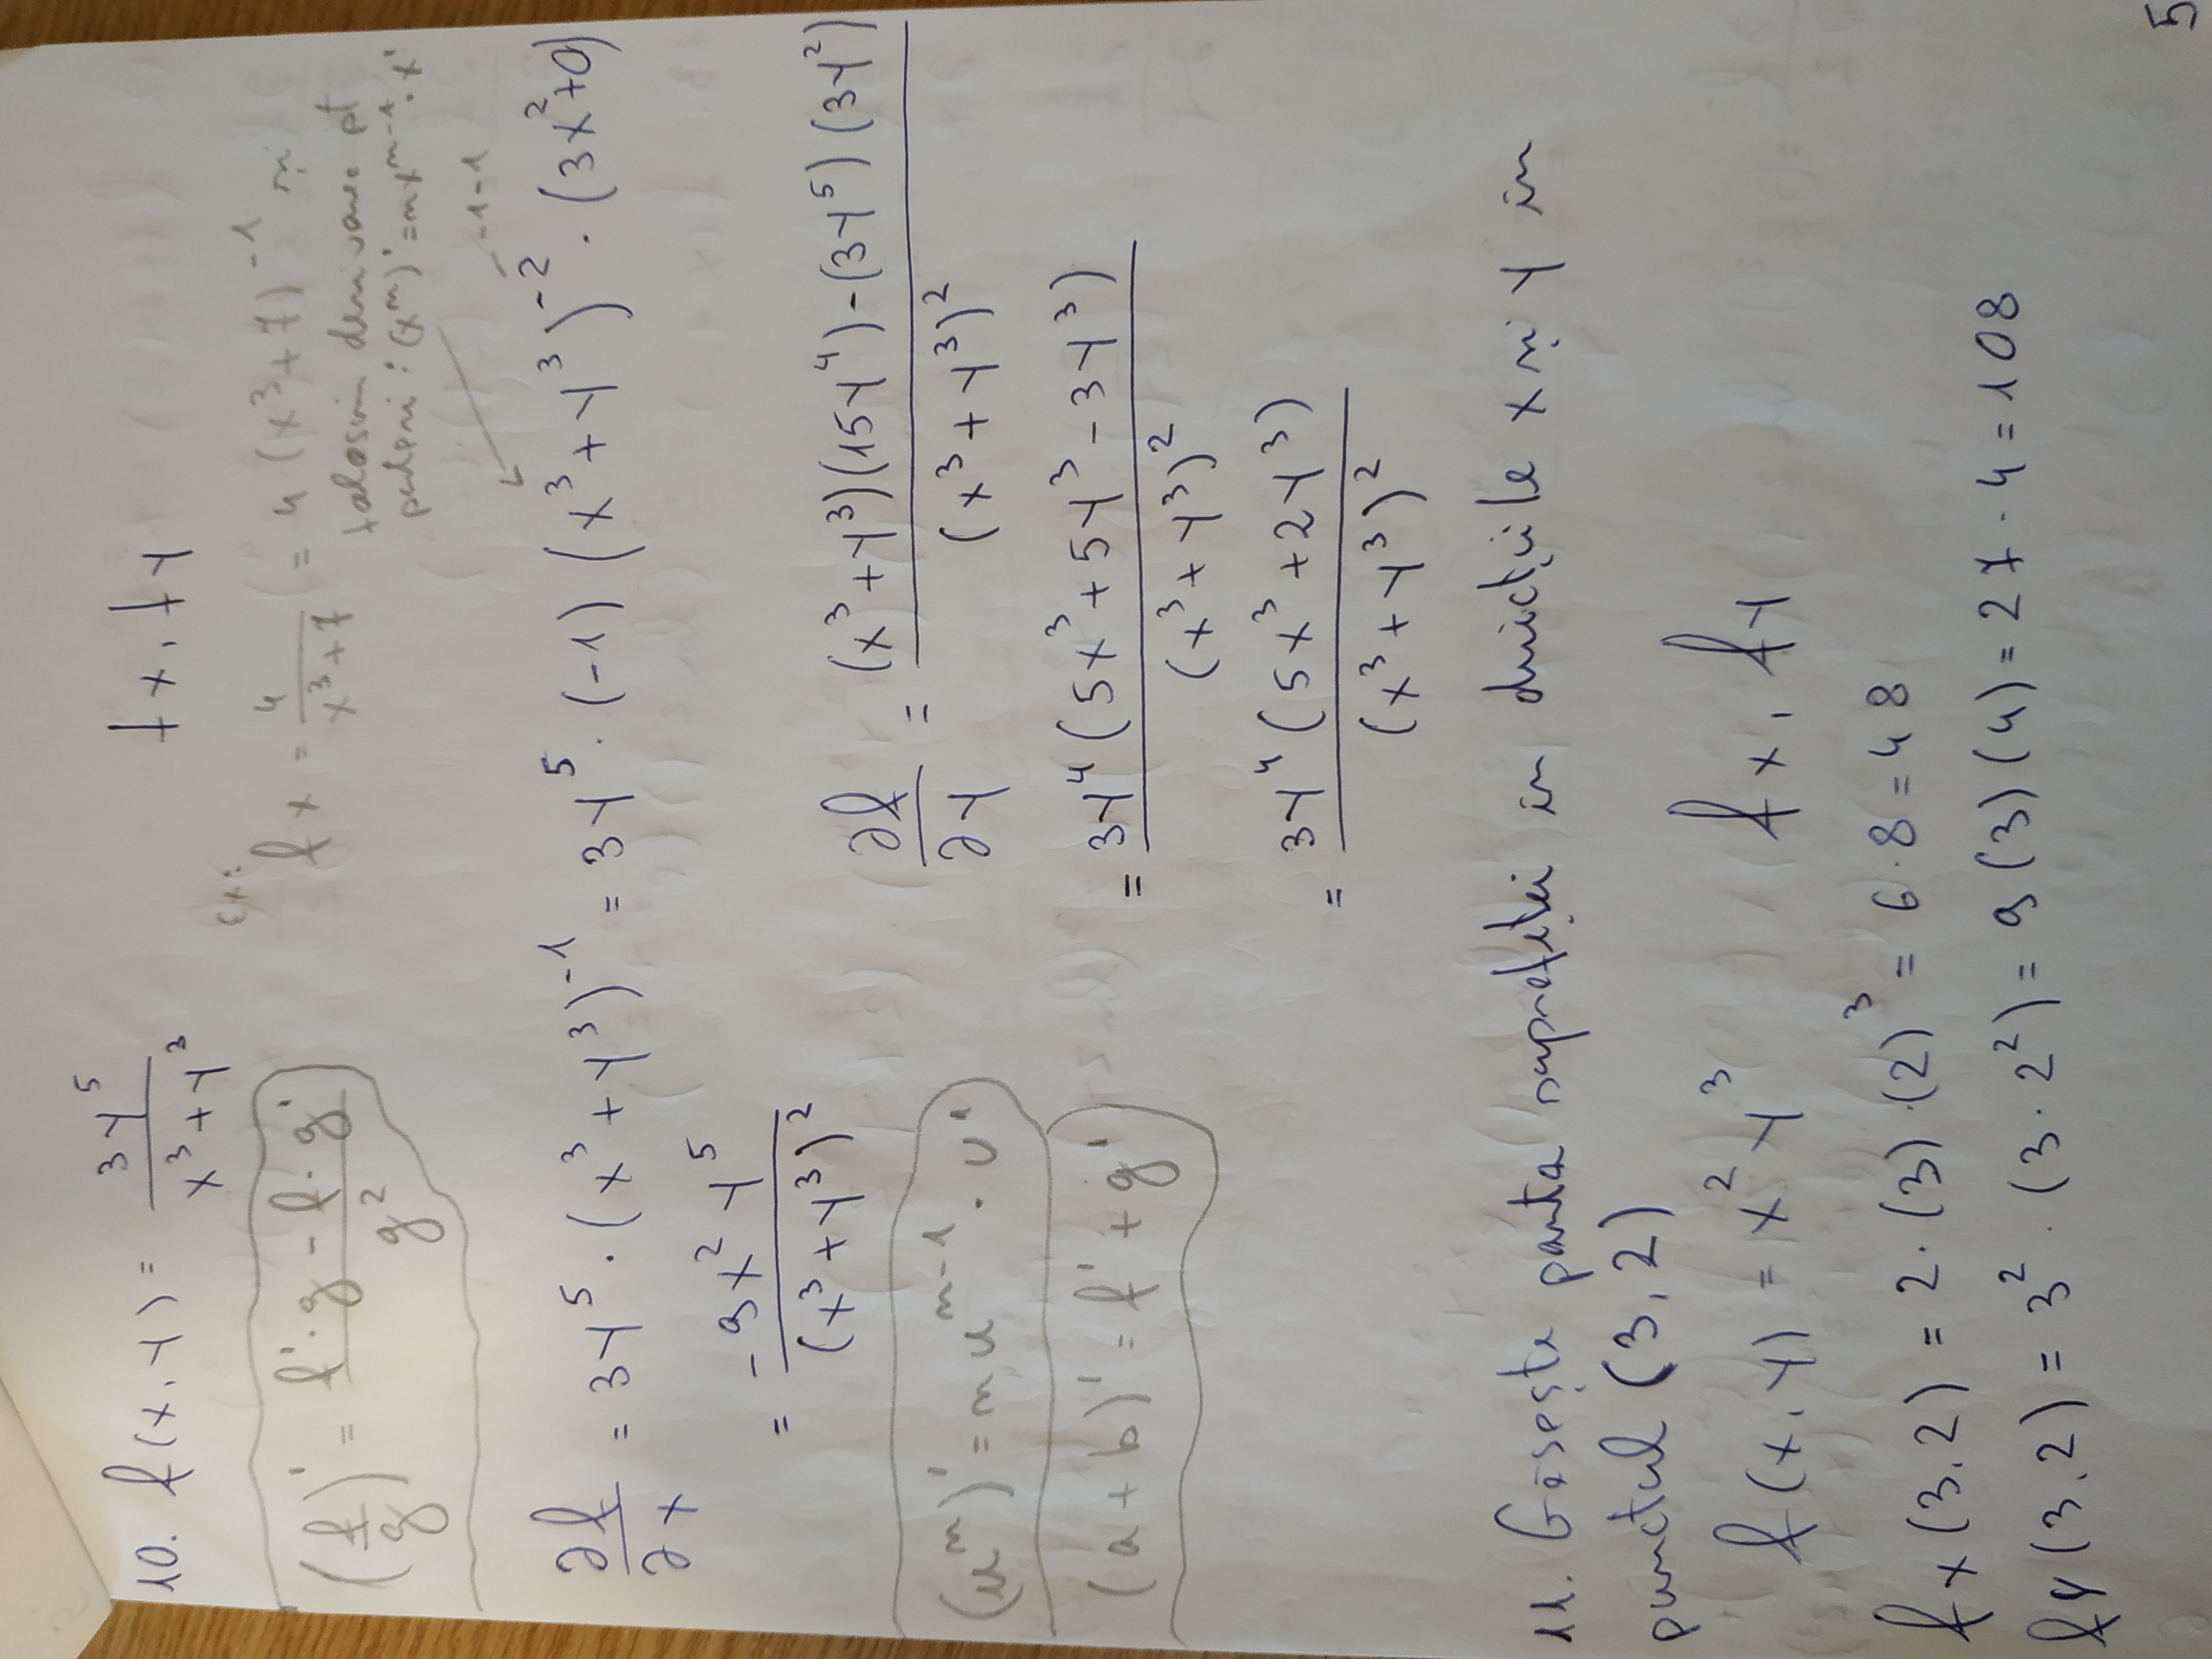 10. f(x, y) = 3y⁵ / (x³ + y³)    fx, fy
(f/g)' = (f'·g - f·g') / g²
Ex:
fx = 4 / (x³ + 7) = 4 (x³ + 7)⁻¹ și
folosim derivarea pt
puteri: (xⁿ)' = nxⁿ⁻¹ · x'
-1-1
∂f/∂x = 3y⁵ · (x³ + y³)⁻¹ = 3y⁵ · (-1) (x³ + y³)⁻² · (3x² + 0)
= -9x² y⁵ / (x³ + y³)²
(uⁿ)' = nuⁿ⁻¹ · u'
(a + b)' = f' + g'
∂f/∂y = (x³ + y³)(15y⁴) - (3y⁵)(3y²) / (x³ + y³)²
= 3y⁴ (5x³ + 5y³ - 3y³) / (x³ + y³)²
= 3y⁴ (5x³ + 2y³) / (x³ + y³)²
11. Găsește panta suprafeței în direcțiile x și y în
punctul (3, 2)
f(x, y) = x² y³    fx, fy
fx (3, 2) = 2 · (3) · (2)³ = 6 · 8 = 48
fy (3, 2) = 3² · (3 · 2²) = 9 (3) (4) = 27 · 4 = 108
5